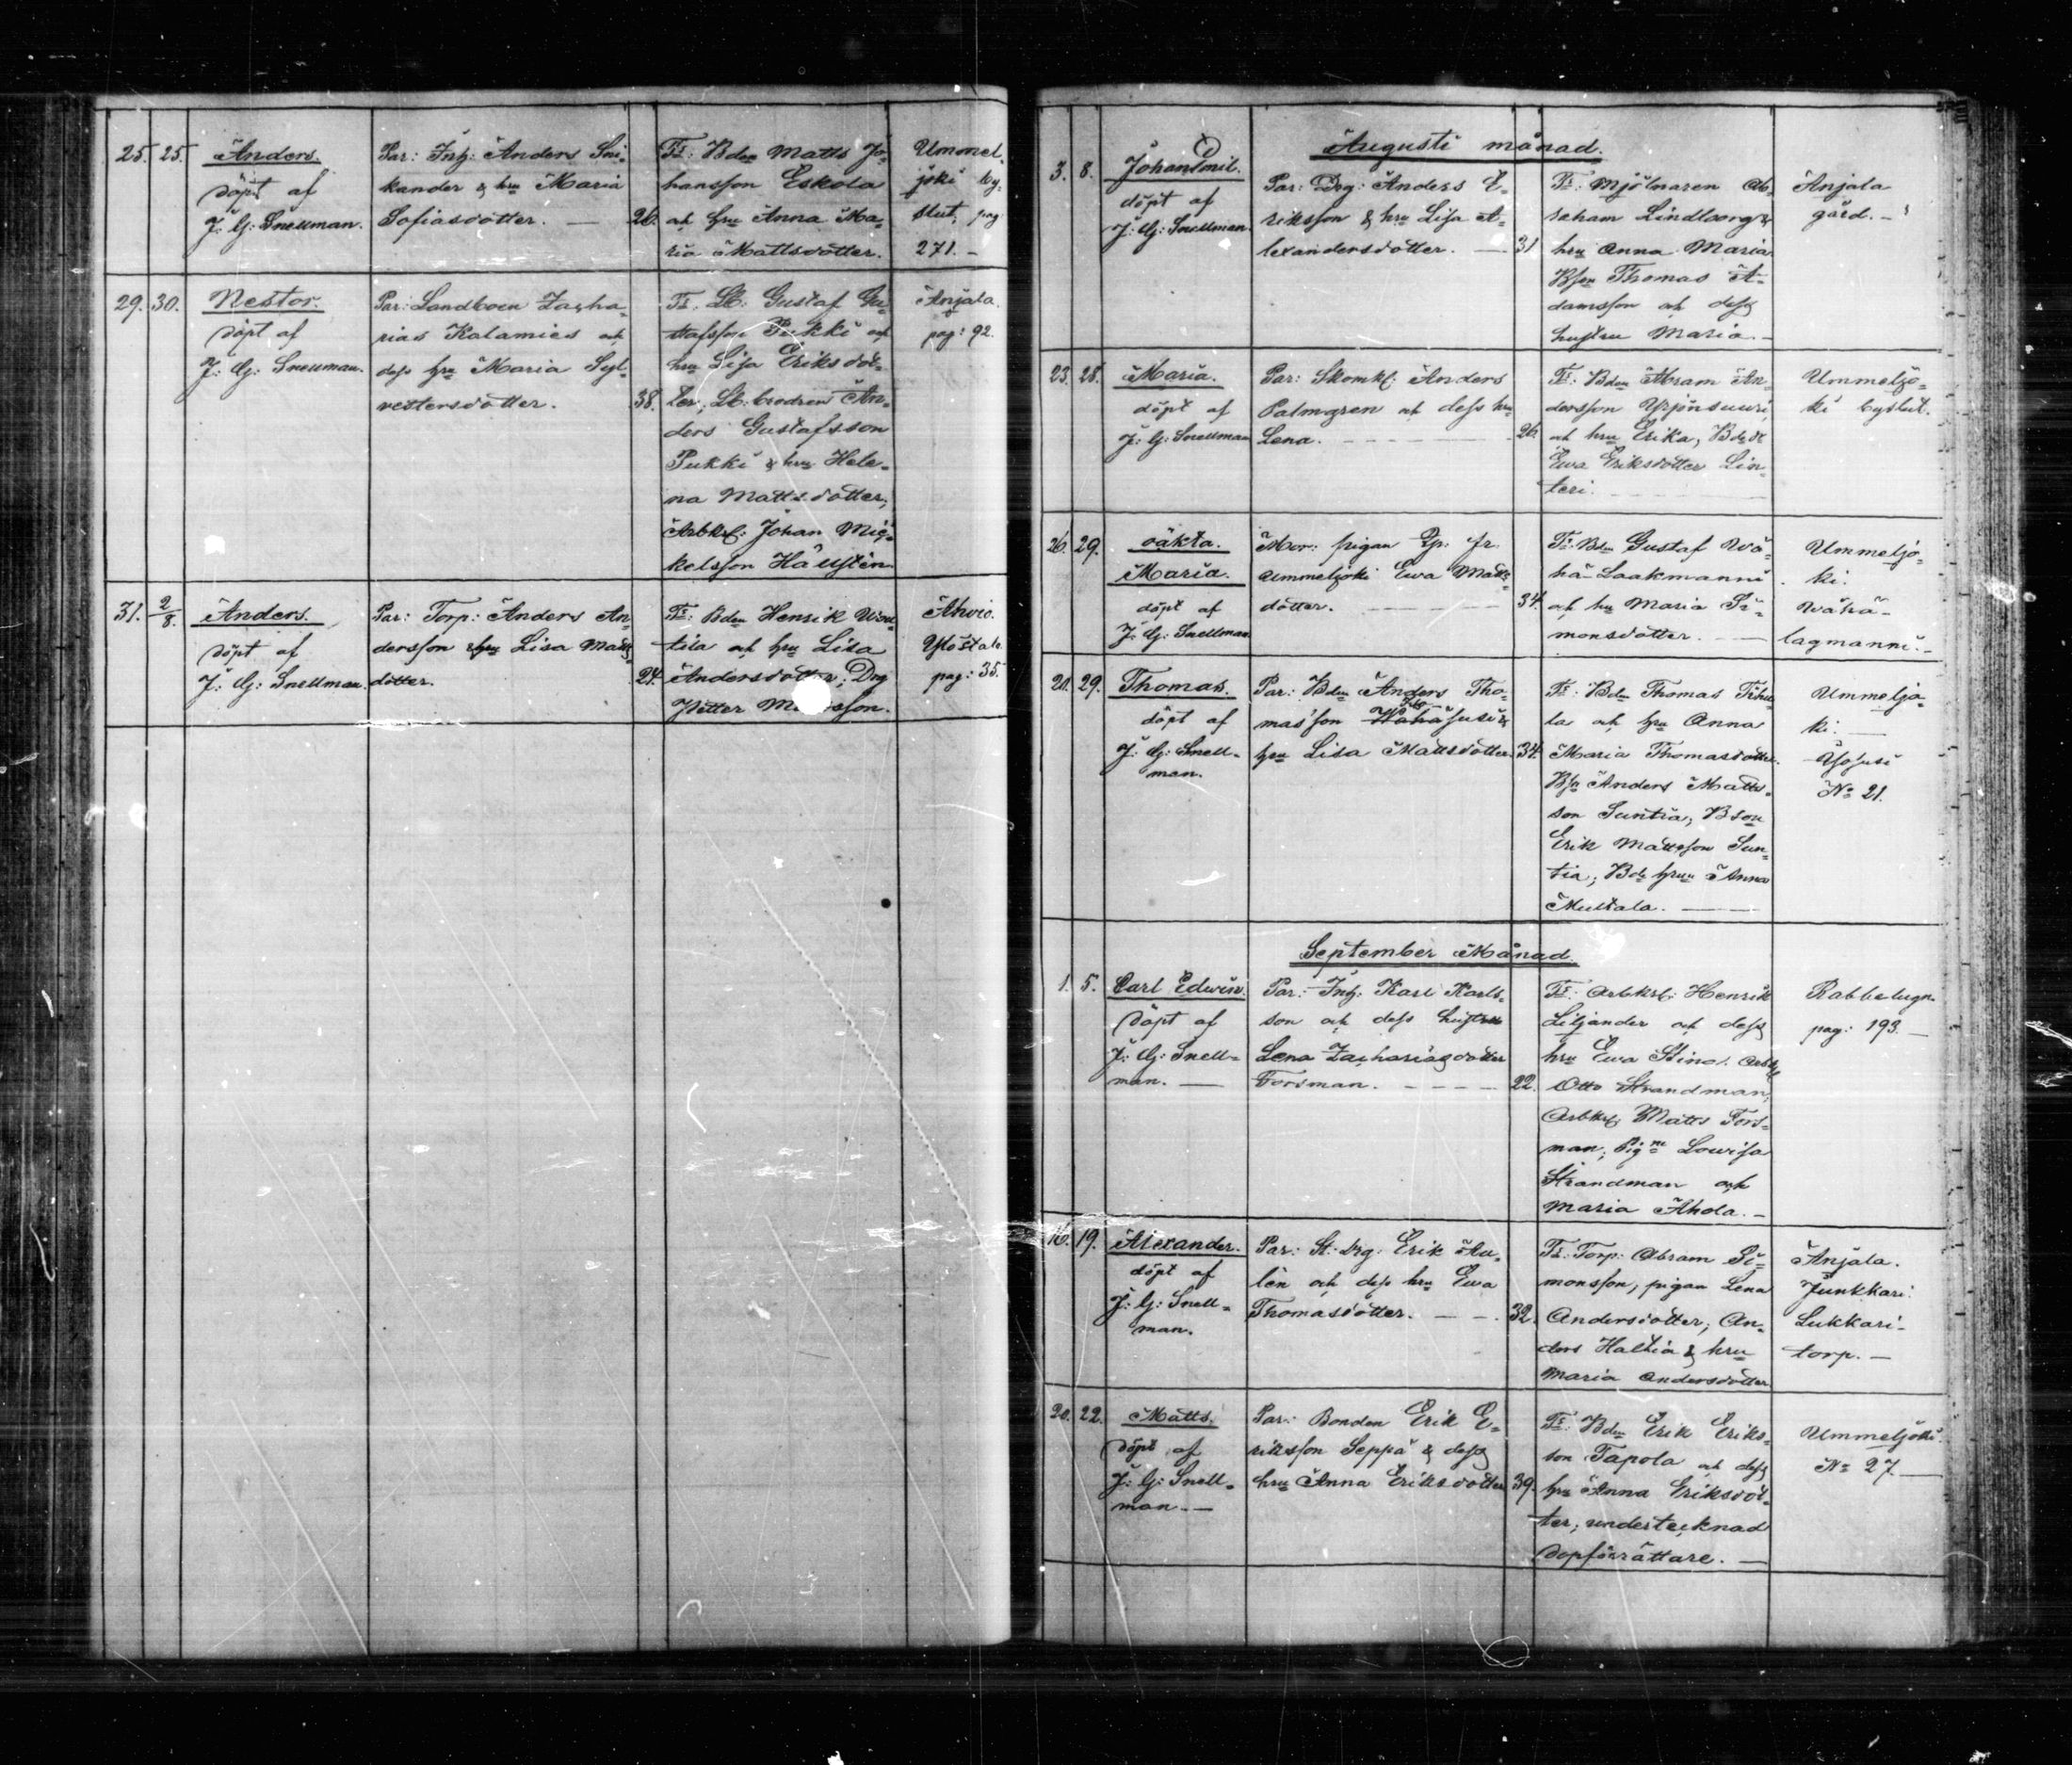 25. 25. Anders.
döpt af
J: G: Snellman.
Par: Inh: Anders Sni-
kander & hru Maria
Sofiasdotter. — 26.
Tr: Bden Matts Jo-
hansson Eskola
och hru Anna Ma-
ria Mattsdotter.
Ummel-
joki by-
slut, pag
271. –
29. 30. Nestor.
döpt af
J: G: Snellman.
Par: Landboen Zacha-
rias Kalamies och
dess hru Maria Syl-
vestersdotter. 38.
Tr. Lb: Gustaf Gu-
stafsson Pukki och
hru Lisa Eriksdot-
ter, Lb: brodren An-
ders Gustafsson
Pukki & hru Hele-
na Mattsdotter,
Arbkrl: Johan Mic-
kelsson Hällstén
Anjala
pag: 92.
31. 2/8. Anders.
döpt af
J: G: Snellman.
Par: Torp: Anders An-
dersson & hru Lisa Matts-
dotter. 24.
Tr: Bden Henrik
tila och hru Lisa
Andersdotter; Drg
Petter
Ahvio.
Ylöstalo
pag: 35.
Augusti månad.
3. 8. Johan Emil.
döpt af
J: G: Snellman.
Par: Drg: Anders E-
riksson & hru Lisa A-
lexandersdotter. — 31
Tr: Mjölnaren Ab-
raham Lindborg &
hru Anna Maria
Bson Thomas A-
damsson och dess
hustru Maria. –
Anjala
gård. –
23. 28. Maria.
döpt af
J: G: Snellman
Par: Skomk: Anders
Palmgren och dess hru
Lena. 26.
Tr: Bden Abram An-
dersson Yrjönsuuri,
och hru Erika, Bdr
Ewa Eriksdotter Lin-
teri.
Ummeljo-
ki byslut.
26. 29. oäkta.
Maria.
döpt af
J: G: Snellman.
Mor: pigan Ip: fr.
Ummeljoki Ewa Matts-
dotter. 34.
Tr: Bden Gustaf Wä-
hä-Laakmanni
och hru Maria Si-
monsdotter. —
Ummeljo-
ki.
Wähä-
lagmanni. –
20. 29. Thomas.
döpt af
J: G: Snell-
man.
Par: Bden Anders Tho-
masson Wähäsusi &
hru Lisa Mattsdotter 34.
Tr: Bden Thomas
la och hru Anna
Maria Thomasdotter.
Bs Anders Matts-
son Suntia, Bson
Erik Mattsson Sun-
tia, Bde hrun Anna
Mustala. —
Ummeljo-
ki. —
Ysosusi
No 21.
September Månad.
1. 5. Carl Edwin.
döpt af
J: G: Snell-
man. —
Par: Inh: Karl Karls-
son och dess hustru
Lena Zachariasdotter
Forsman. 22.
Tr: Arbkrl: Henrik
Liljander och dess
hru Ewa Stina. Arbkrl
Otto Strandman,
Arbkrl: Matts Fors-
man, Pigne Lowisa
Strandman och
Maria Ahola. –
Rabbelugn.
pag: 193. –
16. 19. Alexander.
döpt af
J: G: Snell-
man.
Par: St: drg: Erik Au-
lén och dess hru Ewa
Thomasdotter. 32.
Tr: Torp: Abram Si-
monsson, pigan Lena
Andersdotter; An-
ders Haltia & hru
Maria Andersdotter
Anjala.
Junkkari.
Lukkari-
torp. —
20. 22. Matts.
döpt af
J: G: Snell-
man. —
Par: Bonden Erik E-
riksson Seppä & dess
hru Anna Eriksdotter 39.
Tr: Bden Erik Eriks-
son Tapola och dess
hru Anna Eriksdot-
ter, undertecknad
dopförrättare. —
Ummeljoki.
No 27. —